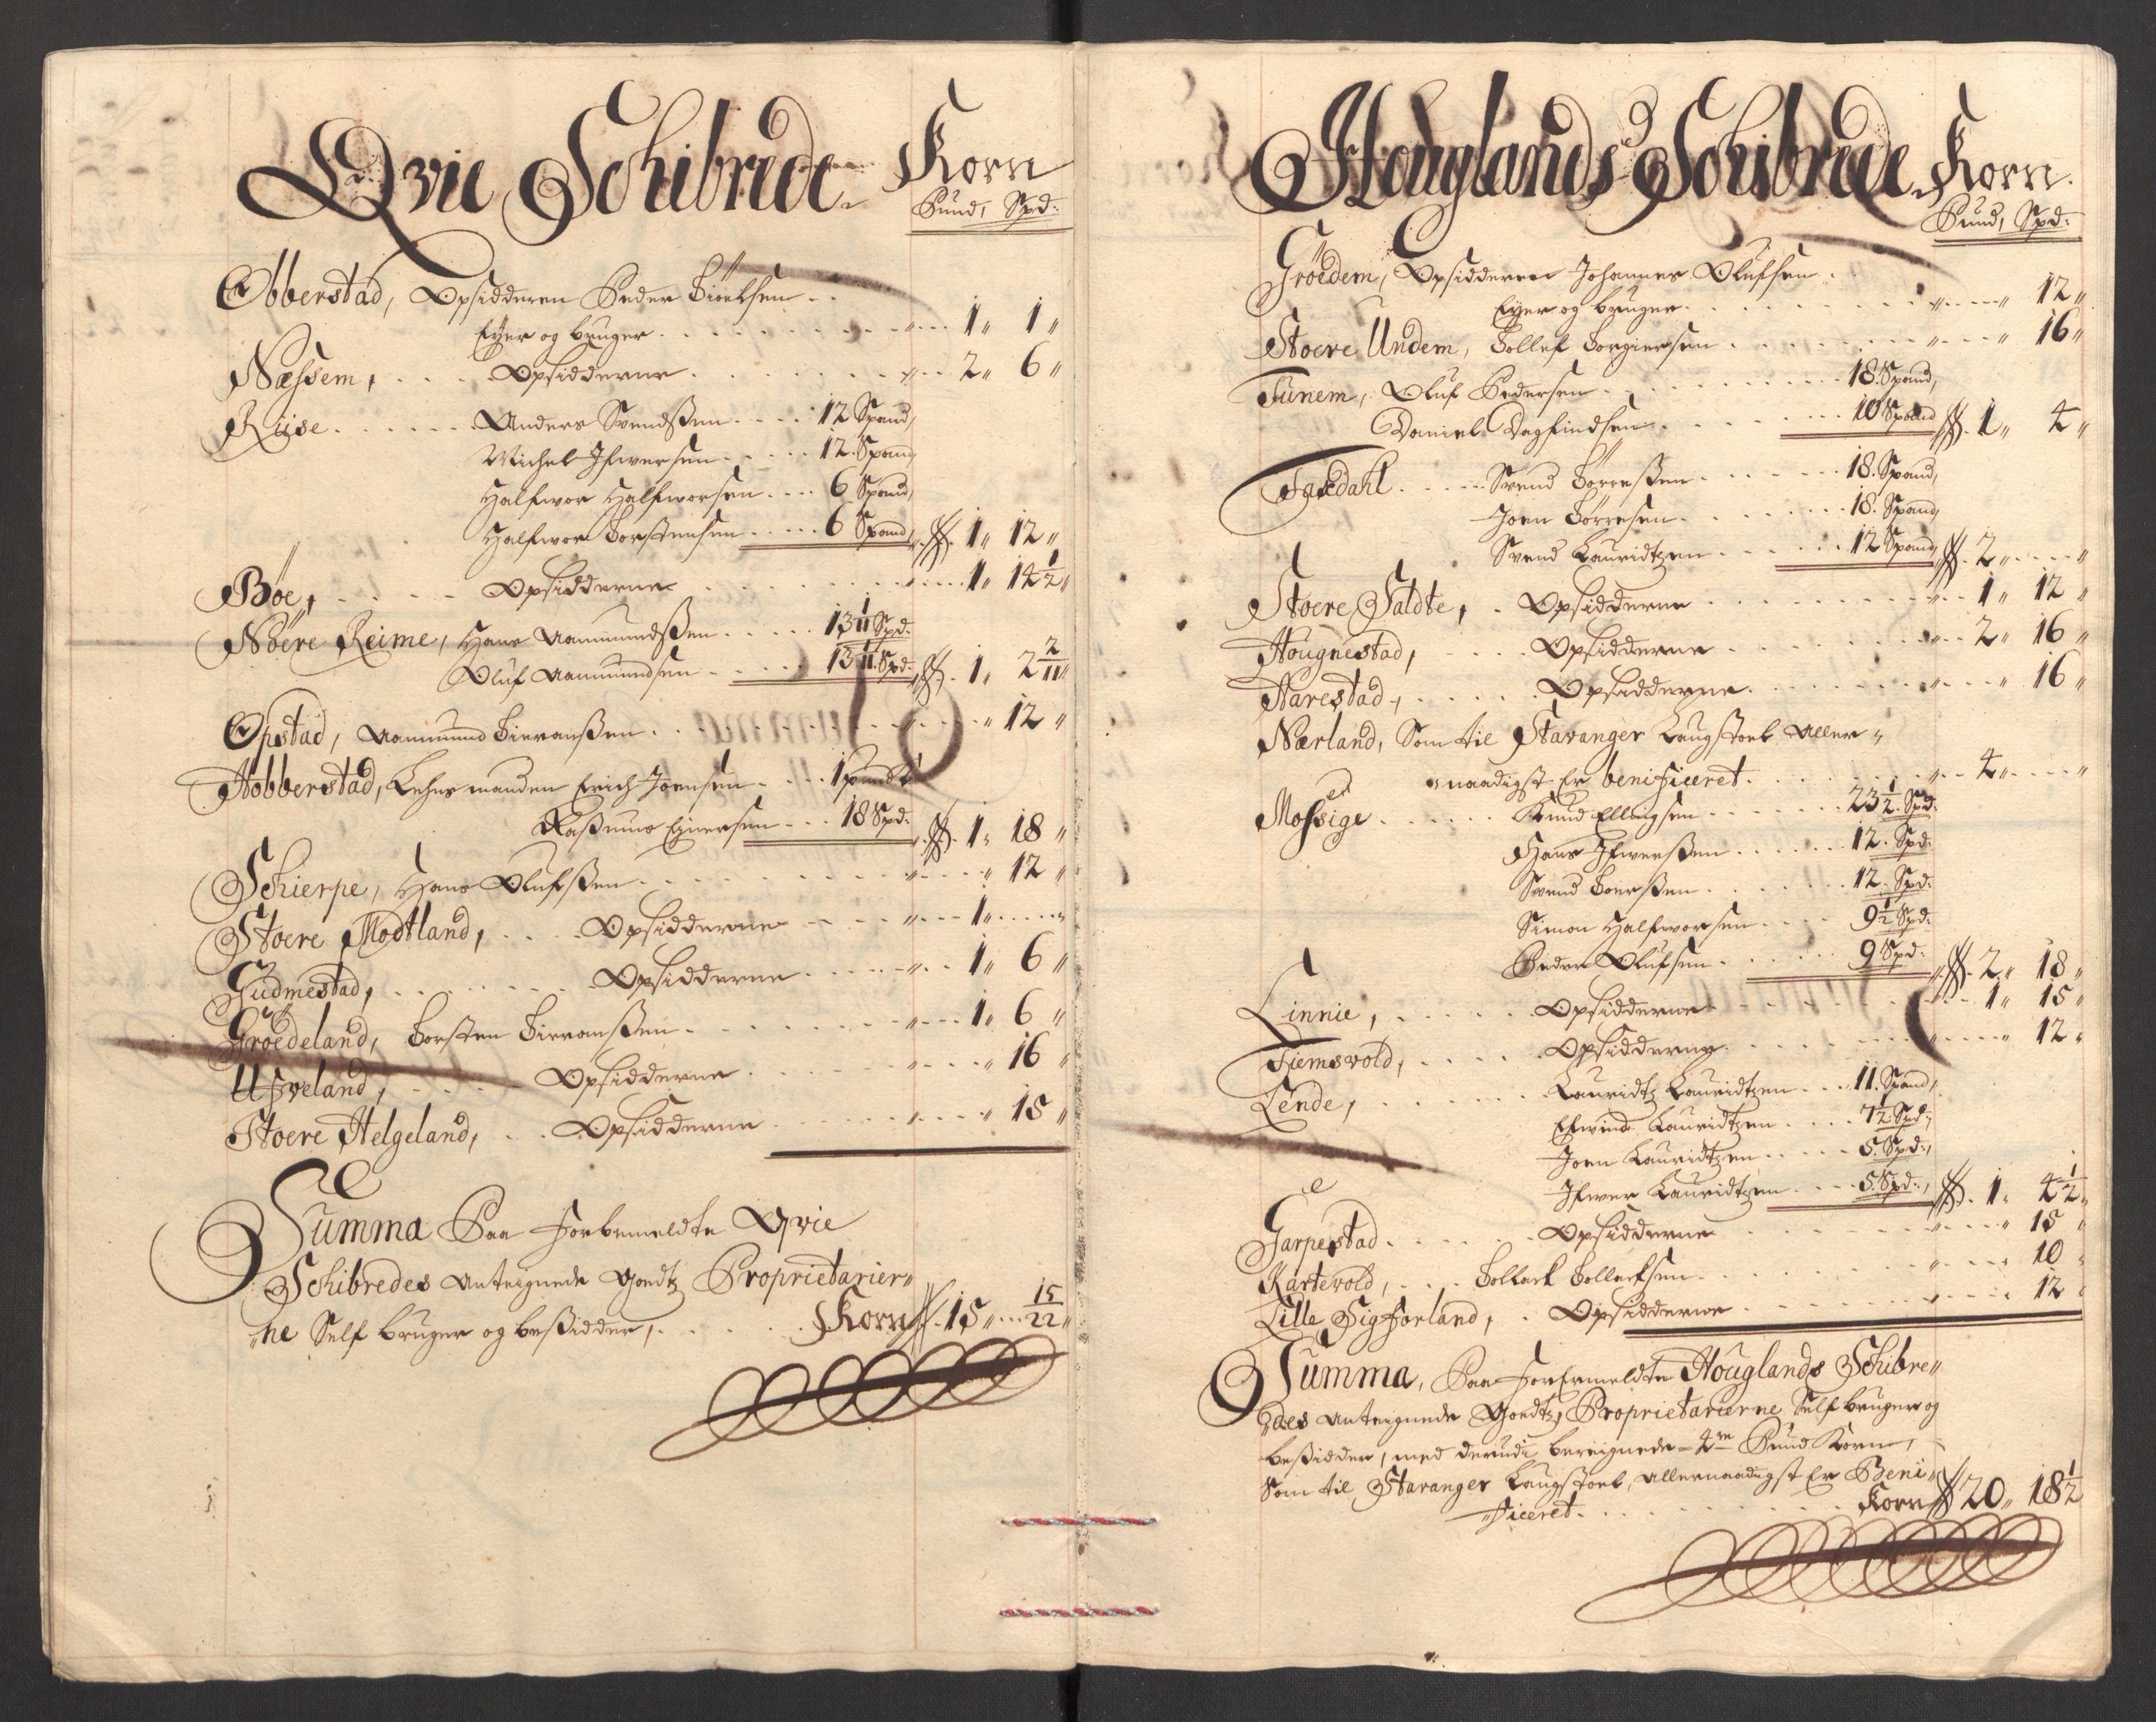 Qvie Schibrede. Korn
Pund, Spd:
Obberstad, Opsidderen Peder Tiøelsen . .
Eÿer og bruger . . . . . . . . „ . . . 1 „ 1 „
Næssem, . . . Opsidderne . . . . . . . „ . . 2 „ 6 „
Riise . . . . . . Anders Svendsßen . . . . 12 Spand,
Michel Ifwersen . . . . . 12. Spand,
Halfwor Halfworsen . . . . 6 Spand,
Halfwor Torstensen . . . . . 6 Spand, . 1 „ 12 „
Bøe, . . . . . Opsidderne . . . . . . . . . . 1 „ 14 1/2 „
Nøere Reime, Hans Aamundsßen . . . . . 13 1/11 Spd.
Oluf Aamundsen . . . . . 13 1/11 Spd: . 1 „ 2 2/11 „
Opstad, Aamund Sivorsßen . . . . . . . . . . „ 12 „
Hobberstad, Lehnsmanden Erich Joensen . . . . 1 pund
Rasmus Ejversen . . . 18 Spd: . 1 „ 18 „
Schierpe, Hans Olufsßen . . . . . . . . „ . . . „ 12 „
Stoere Modtland, . . . . Opsidderne . . . „ . . . 1 „ . . . „
Gudmestad, . . . . . . . Opsidderne . . . . . „ . . 1 „ 6 „
Grøedeland, Torsten Sivorsßen . . . . . . . „ . . . 1 „ 6 „
Ufveland, . . . . . Opsidderne . . . . . . „ . . . „ 16 „
Stoere Helgeland, . . . Opsidderne . . . . . „ . . . „ 15 „
Summa Paa forbemeldte Qvie
Schibredes Anteignede Goedtz Proprietarier„
„ne Self bruger og besidder, . . . . . Korn . 15 „ . . 15/22 „
Houglands Schibrede. Korn.
Pund, Spd:
Grøedem, Opsidderen Johannes Olufsen . .
Eyer og bruger . . . . . . . . „ . . . „ 12 „
Stoere Undem, Tollef Torgiersen . . . . . . . „ . . . „ 16 „
Tunem, Oluf Pedersen . . . . . . . . . . 18. Spand,
Daniel Dagfindsen . . . . . . . 10 Spand . 1 „ 4 „
Tgaedahl . . . . . Svend Børresßen . . . . . . 18. Spand,
Joen Børresen . . . . . . . 18. Spand,
Svend Lauridtzen . . . . . . 12 Spand, . 2 „ . . . „
Stoere Saldte, . Opsidderne . . . . . . . . „ . . 1 „ 12 „
Hougnestad, . . . . . Opsidderne . . . . . . . „ . . 2 „ 16 „
Narestad, . . . . . . Opsidderne . . . . . . . „ . . . „ 16 „
Nærland, Som til Stavanger Laugstoel Aller„
„naadigst Er benificeret . . . . . . . . „ . . 4 „ . . . „
Mossige . . . . . . Knud Ellingsen . . . . . . 23 1/2 Spd:
Hans Ifwersßen . . . . . . 12. Spd:
Svend Toersßen . . . . . . . 12. Spd:
Simon Halfworsen . . . . . 9 1/2 Spd:
Peder Olufsen . . . . . . . 9 Spd: . 2 „ 18 „
Linnie, . . . . . . Opsidderne . . . . . . . „ . . 1 „ 15 „
Tiemsvold, . . . . . . Opsidderne . . . . . . . „ . . . „ 12 „
Lende, . . . . . . . Lauridtz Lauridtzen . . . 11. Spand,
Efwind Lauridtzen . . . . 7 1/2 Spd:,
Joen Lauridtzen . . . . . 5. Spd:,
Ifwer Lauridtzen . . . . 5. Spd:, . 1 „ 4 1/2 „
Garpestad . . . . . . Opsidderne . . . . . . „ . . . „ 15 „
Kartevold, . . . . Tollack Tollacksen . . . . . . . „ . . . „ 10 „
Lille Sigforland, . Opsidderne . . . . . . . „ . . . „ 12 „
Summa, Paa forbemeldte Houglands Schibre„
„des Anteignede Goedtz Proprietarierne Self bruger og
besidder, med derudi bereignede 4re Pund Korn,
Som til Stavanger Laugstoel, allernaadigst Er Beni„
„ficeret . . . . . . . . . . . . Korn 20 „ 18 1/2